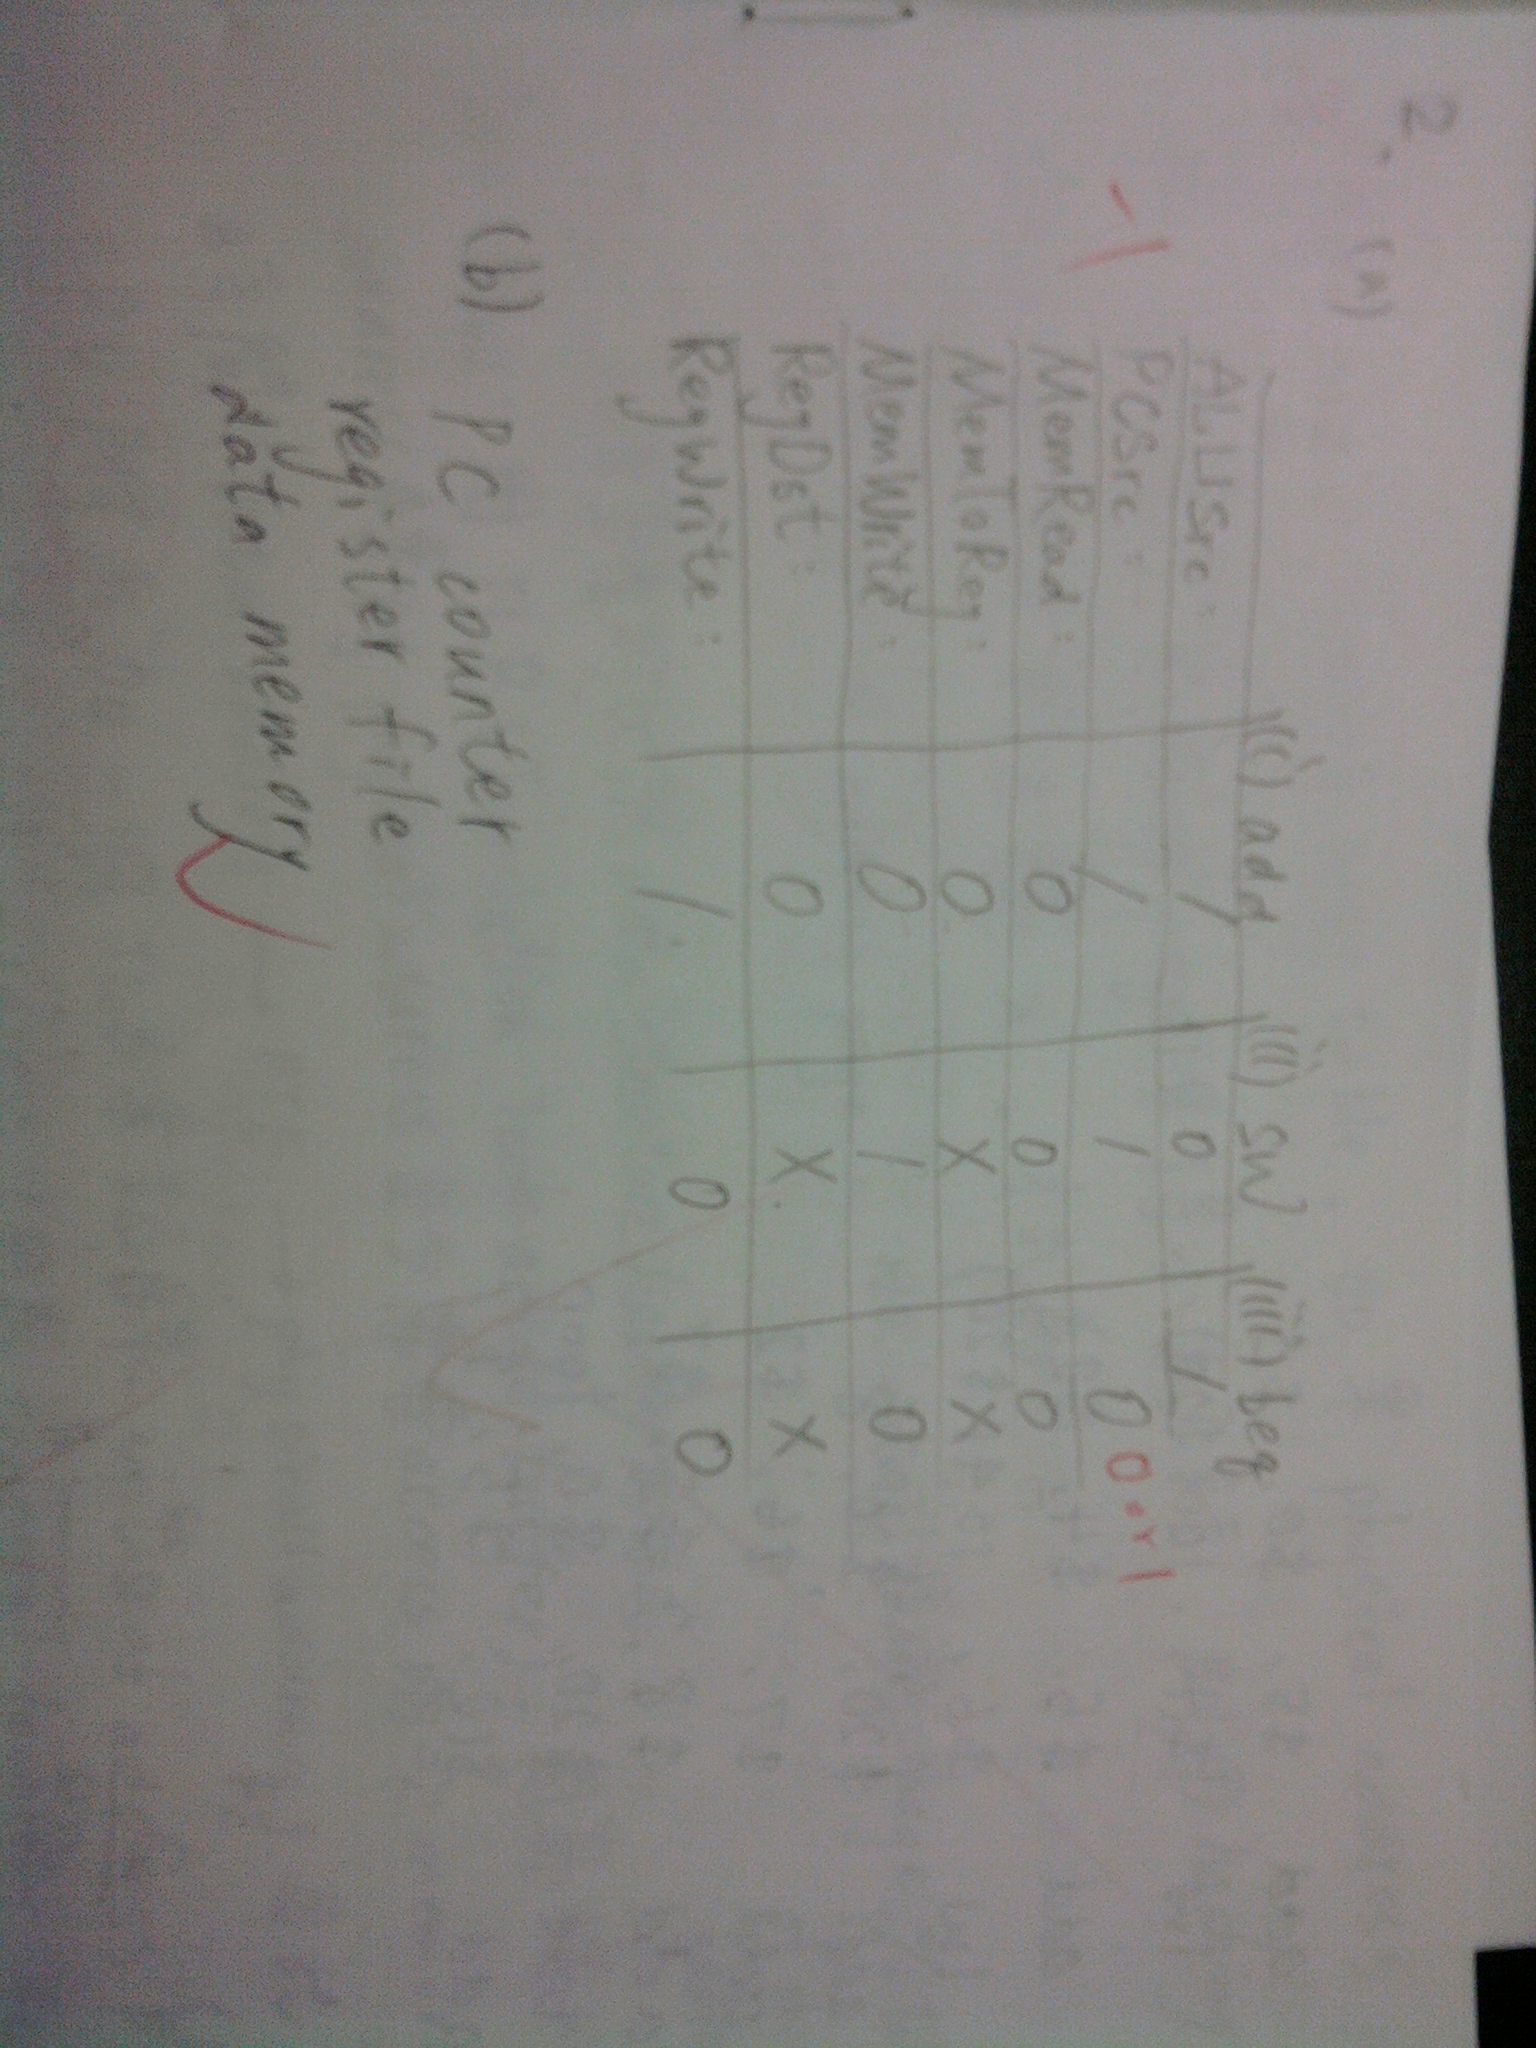 2. (a)
(i) add (ii) sw (iii) beq
ALUSrc: 1 0 1
-1 PCSrc: 1 1 0 0 or 1
MemRead: 0 0 0
MemToReg: 0 X X
MemWrite: 0 1 0
RegDst: 0 X X
RegWrite: 1 0 0
(b) PC counter
register file
data memory